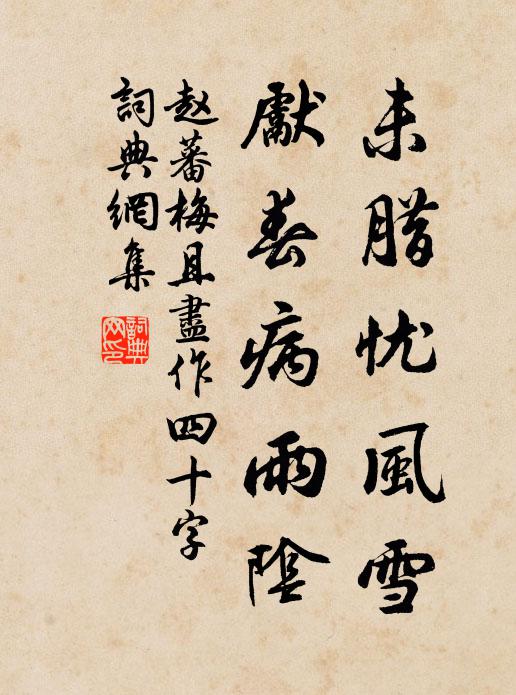 未腊忧風雪
獻春病雨陰
赵蕃梅且盡作四十字
詞典網集
詞典网印